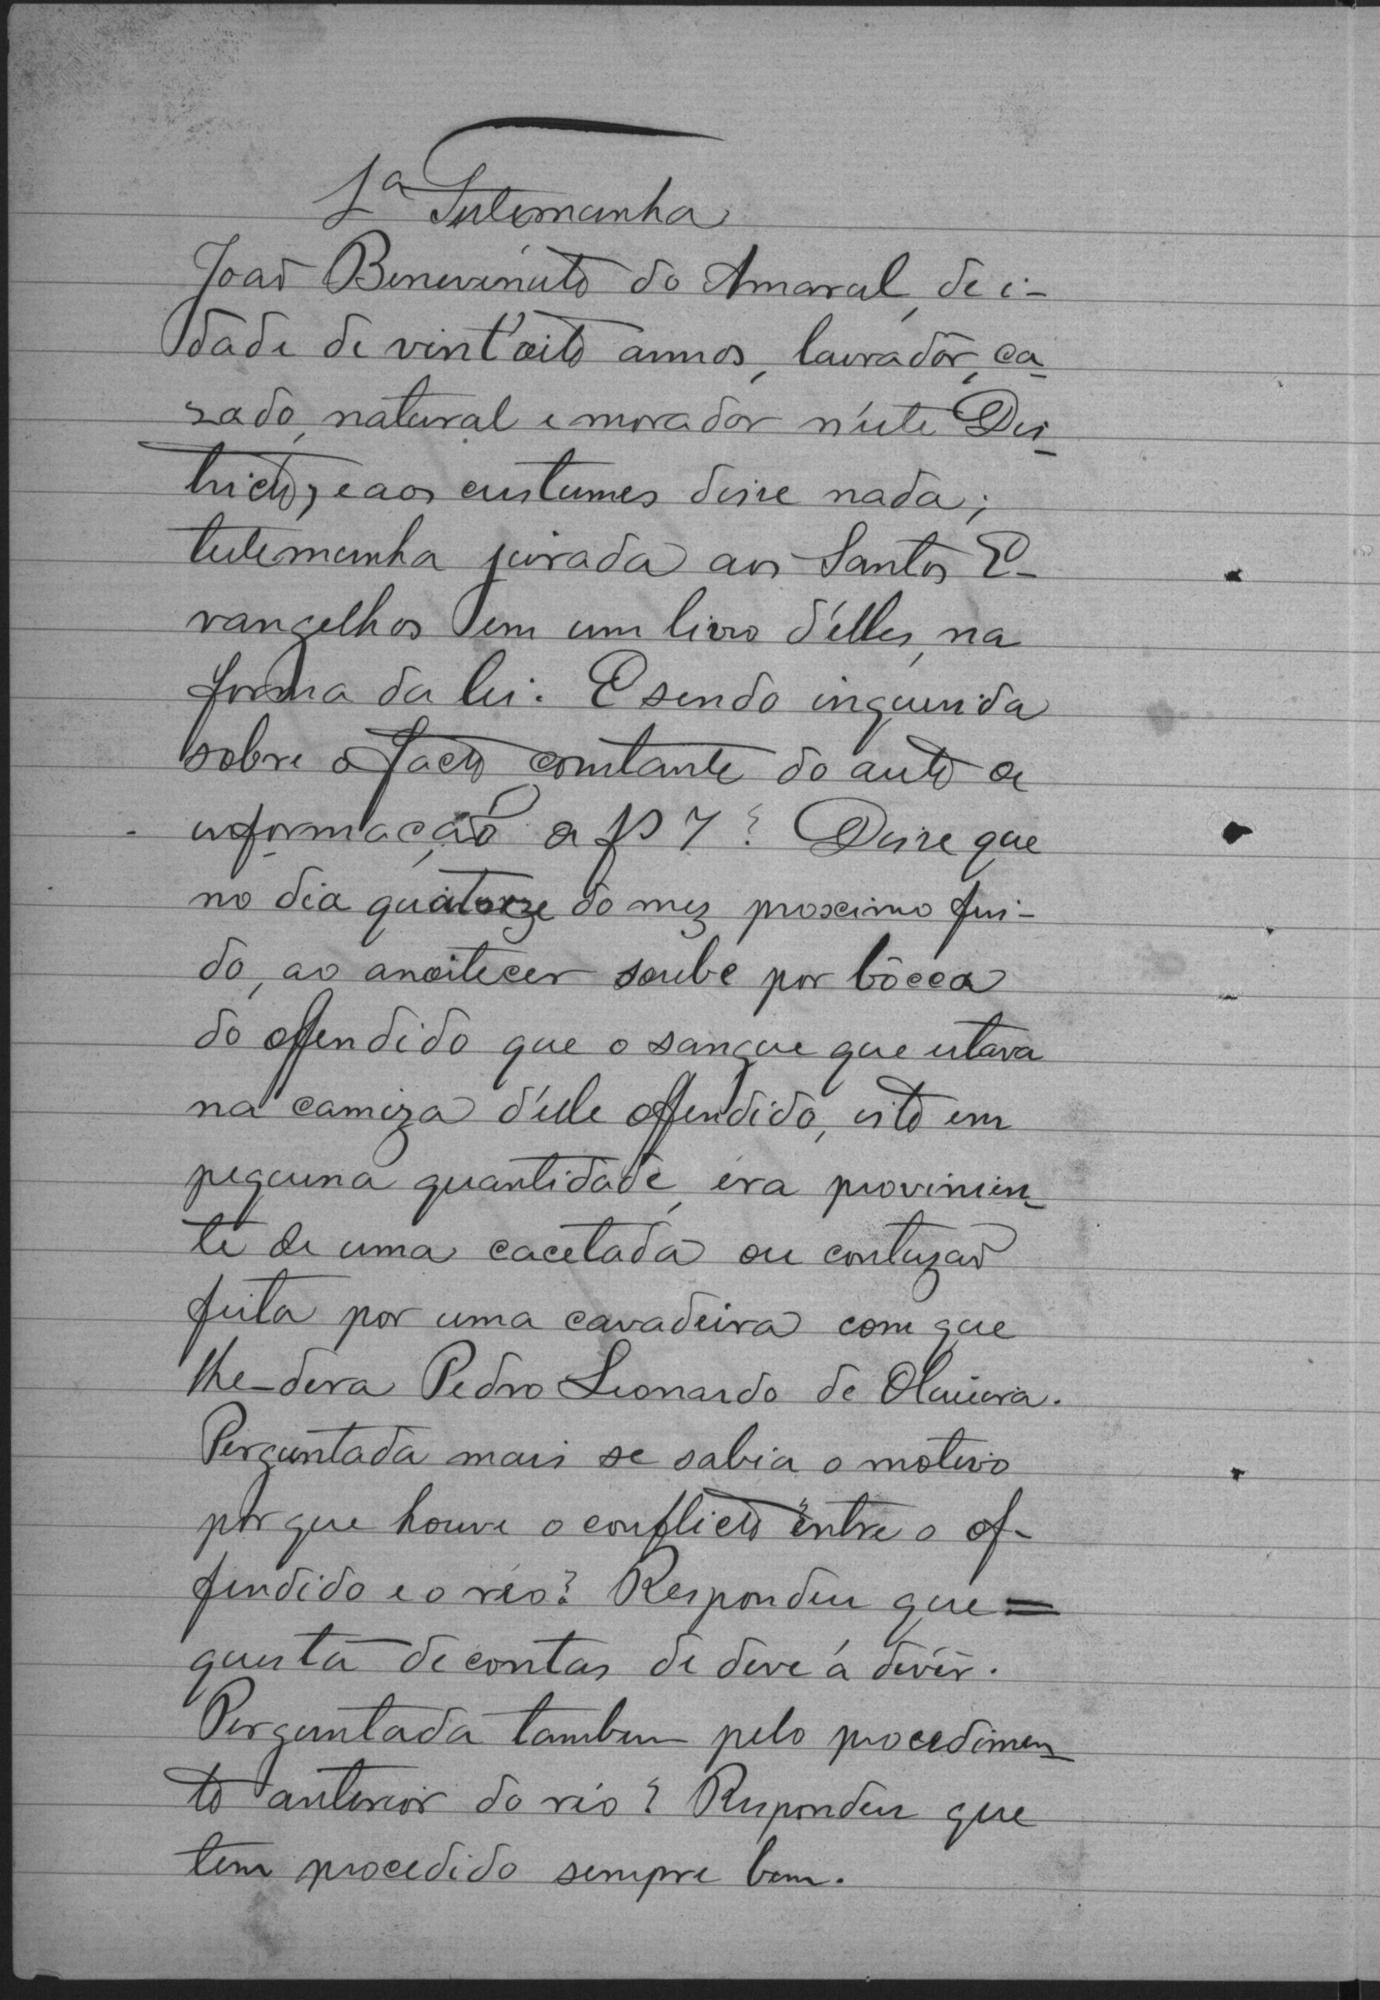 1ª Testemunha
João Benevenuto do Amaral, de i-
dade de vint'oito annos, lavradôr, ca-
zado, natural e morador n'este Dis-
tricto, e aos custumes disse nada;
testemunha jurada aos Santos E-
vangelhos em um livro d'elles, na
forma da lei. E sendo inquerida
sobre o facto constante do auto de
informação a fs 7? Disse que
no dia quatorze do mez proximo fin-
do, ao anoitecer soube por bôcca
do offendido que o sangue que estava
na camiza d'elle offendido, isto em
pequena quantidade, éra provinien-
te de uma cacetada ou contuzão
feita por uma cavadeira com que
lhe-dera Pedro Leonardo de Oliveira.
Perguntada mais se sabia o motivo
por que houve o conflicto entre o of-
fendido e o réo? Respondeu que =
questã de contas de deve á devêr.
Perguntada tambem pelo procedimen-
to anterior do réo? Respondeu que
tem procedido sempre bem.